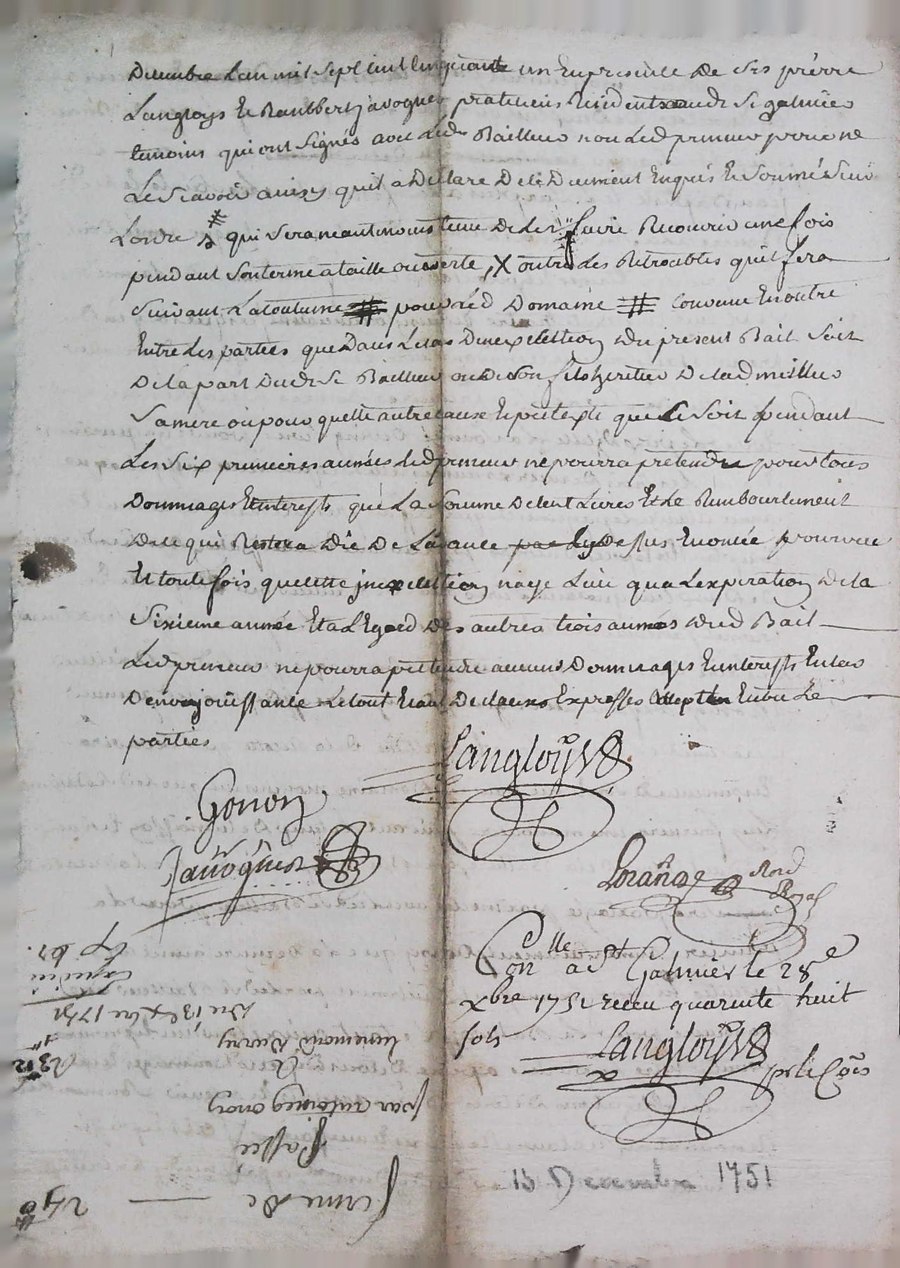 Decembre L'an mil sept cent cinquante un En presence De Srs pierre
Langloys Et Rambbert javogues praticiens Residents audt St galmier
temoins qui ont Signés avec Led Bailleur non Led preneur pour ne
Le Scavoir ainsy quil a Déclaré De Ce Duement Enquis Et Sommé Sur
Lordre qui Sera neantmoins tenu De les faire Recouvrir une fois
pendant Son terme a taille ouverte, X outre les Retroubles quil fera
Suivant La Coutume pour Led Domaine Convenu En outre
Entre Les parties que Dans Le cas D'inexecution du present Bail Soit
De la part Dudt Sr Bailleur ou De Son fils heritier De lad
Sa mere ou pour quelle autre cause Et pretexte que Ce Soit pendant
Les Six premieres années Led preneur ne pourra pretendre pour tous
Dommages Et interests que La Somme De Cent Livres Et Le Remboursement
De Ce qui Restera Dû De Lavance Cy Dessus Enoncée pourveu
Et toutefois que Cette inexecution naye Lieu qu'a Lexpiration De la
Sixieme année Et a L'Egard Des autres trois années dud Bail
Led preneur ne pourra pretendre aucuns Dommages Et interests En Cas
De non jouissance Le tout Etant De clauses Expresses Entre Les
parties
Langloys
Gonon
Javogues
Lorange
Con.lle a St Galmier le 28e
Xbre 1751 receu quarente huit
sols
Langloys
Du 13e Xbre 1751
par antoine gonon
Passée
ferme De
249
13 Decembre 1751